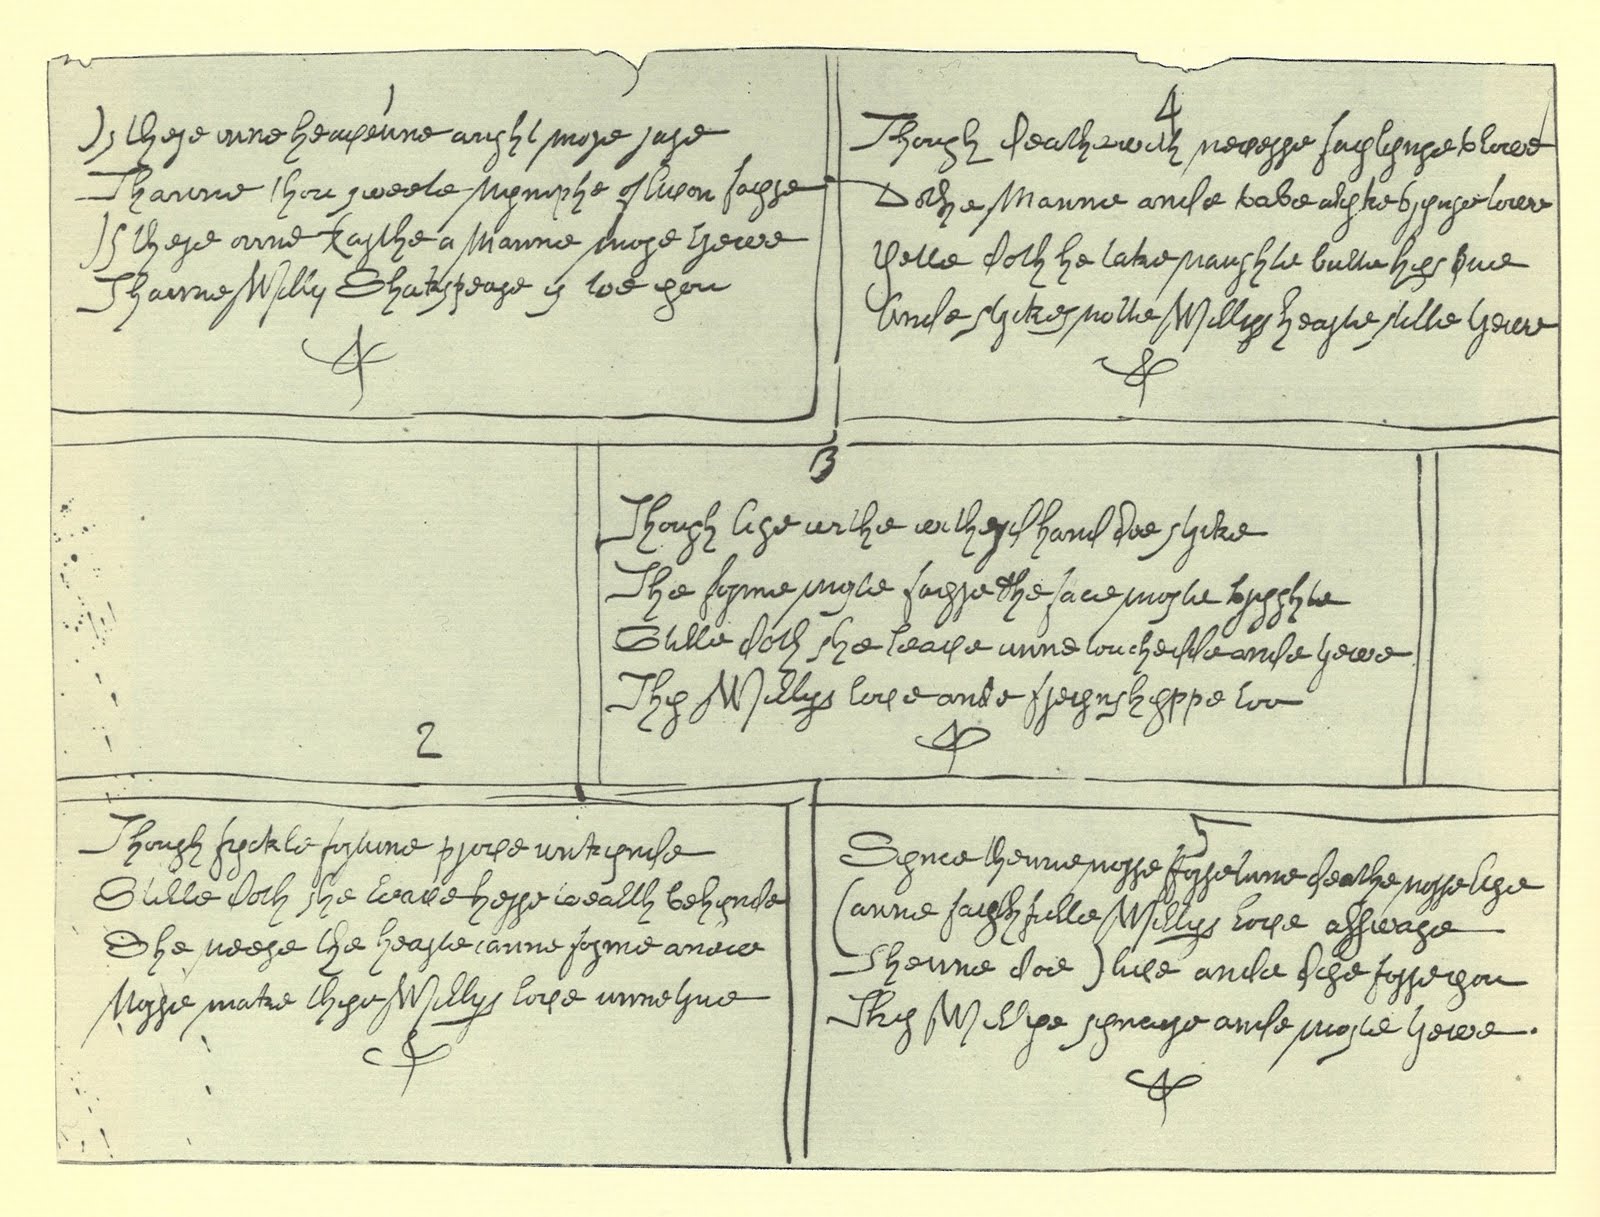 1
Is there inne heavenne aught more rare
Thanne thou sweete Nymphe of Avon fayre
Is there onne Earthe a Manne more trewe
Thanne Willy Shakspeare is toe you
2
Though fyckle fortune prove unkynde
Stille doth she leave herre wealth behynde
She neere the hearte canne forme anew
Norre make thye Willys love unnetrue
3
Though Age withe witherd hand doe stryke
The forme moste fayre the face moste bryghte
Stille doth she leave unnetouchedde ande trewe
Thy Willys love ande freynshyppe too
4
Though deathe with neverre faylynge blowe
Dothe Manne ande babe alyke brynge lowe
Yette doth he take naughte butte hys due
Ande strykes notte Willys hearte stille trewe
5
Synce thenne norre forretune deathe norre Age
Canne faythfulle Willys love asswage
Thenne doe I live ande dye forre you
Thy Willye syncere ande moste trewe.